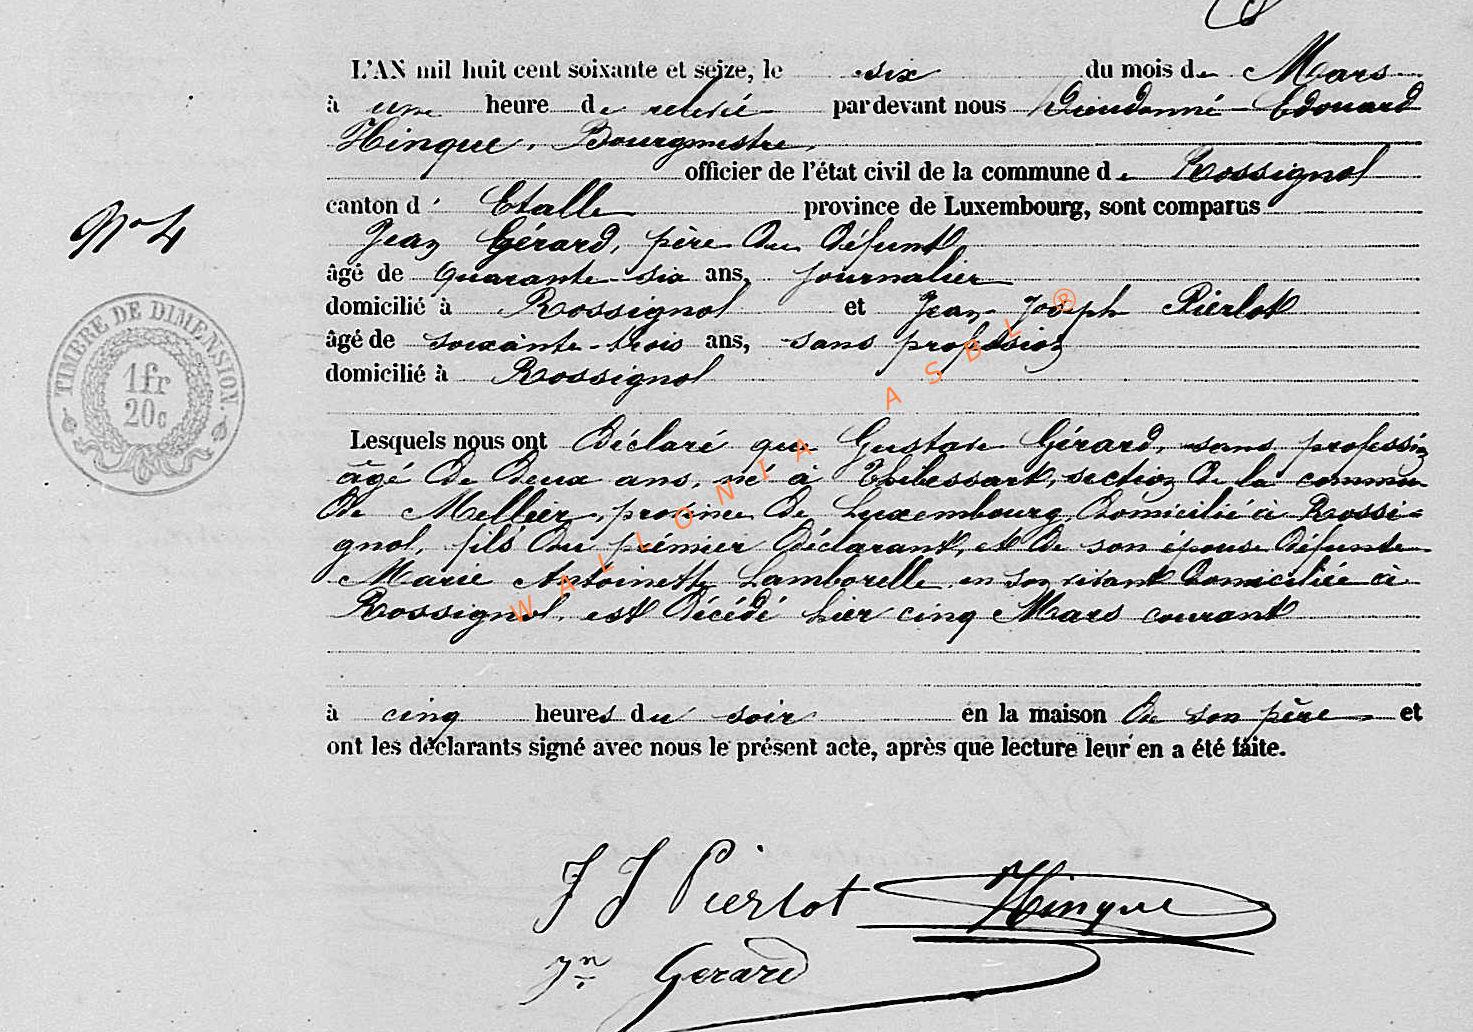 L'AN mil huit cent soixante et seize, le six du mois de Mars
à une heure de relevée par devant nous Dieudonné Edouard
Hinque, Bourgmestre,
officier de l'état civil de la commune de Rossignol
canton d' Etalle province de Luxembourg, sont comparus
Jean Gérard, père du défunt,
âgé de quarante six ans, journalier
domicilié à Rossignol et Jean Joseph Pierlot
âgé de soixante-trois ans, sans profession
domicilié à Rossignol
Lesquels nous ont déclaré que Gustave Gérard, sans profession
âgé de deux ans, né à Thibessart, section de la commune
de Mellier, province de Luxembourg, domicilié à Rossi-
gnol, fils du premier déclarant, et de son épouse défunte
Marie Antoinette Lamborelle en son vivant domiciliée à
Rossignol, est décédé hier cinq Mars courant
à cinq heures du soir en la maison de son père et
ont les déclarants signé avec nous le présent acte, après que lecture leur en a été faite.
No 4
TIMBRE DE DIMENSION.
1 fr
20 c
J J Pierlot Hinque
Jn Gerard
WALLONIA ASBL ®